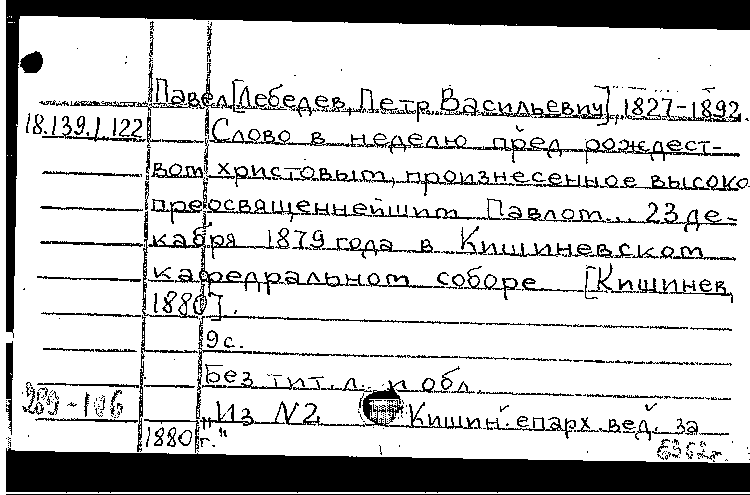 Павел[Лебедев, Петр Васильевич], 1827-1892.
18.139.1.122 Слово в неделю пред рождест-
вом христовым, произнесенное высоко
преосвященнейшим Павлом... 23 де-
кабря 1879 года в Кишиневском
кафедральном соборе [Кишинев,
1880].
9с.
Без тит.л. и обл.
289-106 "Из N2 Кишин. епарх. вед. за
1880 г."